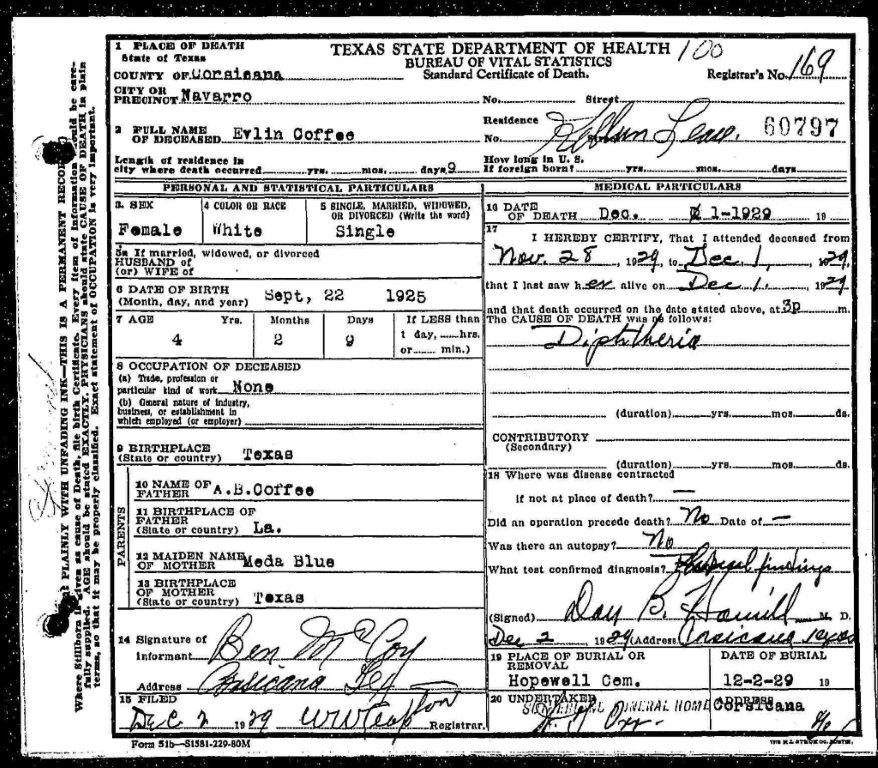 TEXAS STATE DEPARTMENT OF HEALTH 100
BUREAU OF VITAL STATISTICS
Standard Certificate of Death.
Registrar's No. 169
1 PLACE OF DEATH
State of Texas
COUNTY OF Corsicana
CITY OR
PRECINCT Navarro
No. Street
2 FULL NAME
OF DECEASED Evlin Coffee
Residence
No. Street
60797
Length of residence in
city where death occurred yrs. mos. days 9
How long in U. S.
if foreign born? yrs. mos. days
PERSONAL AND STATISTICAL PARTICULARS
3. SEX
Female
4 COLOR OR RACE
White
5 SINGLE, MARRIED, WIDOWED,
OR DIVORCED (Write the word)
Single
5a If married, widowed, or divorced
HUSBAND of
(or) WIFE of
6 DATE OF BIRTH
(Month, day, and year) Sept, 22 1925
7 AGE Yrs. Months Days If LESS than
4 2 9 1 day, hrs.
or min.)
8 OCCUPATION OF DECEASED
(a) Trade, profession or
particular kind of work None
(b) General nature of industry,
business, or establishment in
which employed (or employer)
9 BIRTHPLACE
(State or country) Texas
PARENTS
10 NAME OF
FATHER A.B.Coffee
11 BIRTHPLACE OF
FATHER
(State or country) La.
12 MAIDEN NAME
OF MOTHER Meda Blue
13 BIRTHPLACE
OF MOTHER
(State or country) Texas
14 Signature of
Informant Ben McCoy
Address Corsicana Tex
15 FILED
Dec 2 1929 Registrar.
MEDICAL PARTICULARS
16 DATE
OF DEATH Dec. 1-1929 19
17
I HEREBY CERTIFY, That I attended deceased from
Nov. 28, 1929, to Dec 1, 1929,
that I last saw her alive on Dec 1. 1929
and that death occurred on the date stated above, at 3p m.
The CAUSE OF DEATH was as follows:
Diphtheria
(duration) yrs. mos. ds.
CONTRIBUTORY
(Secondary)
(duration) yrs. mos. ds.
18 Where was disease contracted
if not at place of death? —
Did an operation precede death? No Date of —
Was there an autopsy? No
What test confirmed diagnosis? findings
(Signed) M. D.
Dec 2 1929 (Address) Corsicana Texas
19 PLACE OF BURIAL OR
REMOVAL
Hopewell Cem.
DATE OF BURIAL
12-2-29 19
20 UNDERTAKER
FUNERAL HOME
ADDRESS
Corsicana
Form 51b—S1581-229-80M
PLAINLY WITH UNFADING INK—THIS IS A PERMANENT RECORD